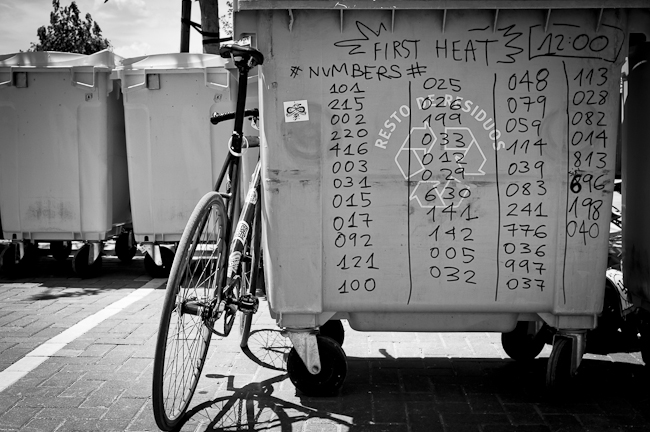 FIRST HEAT 12:00
# NUMBERS #
101
215
002
220
416
003
031
015
017
092
121
100
025
026
199
033
012
029
630
141
142
005
032
048
079
059
114
039
083
241
776
036
997
037
113
028
082
014
813
696
198
040
RESTO DE RESIDUOS